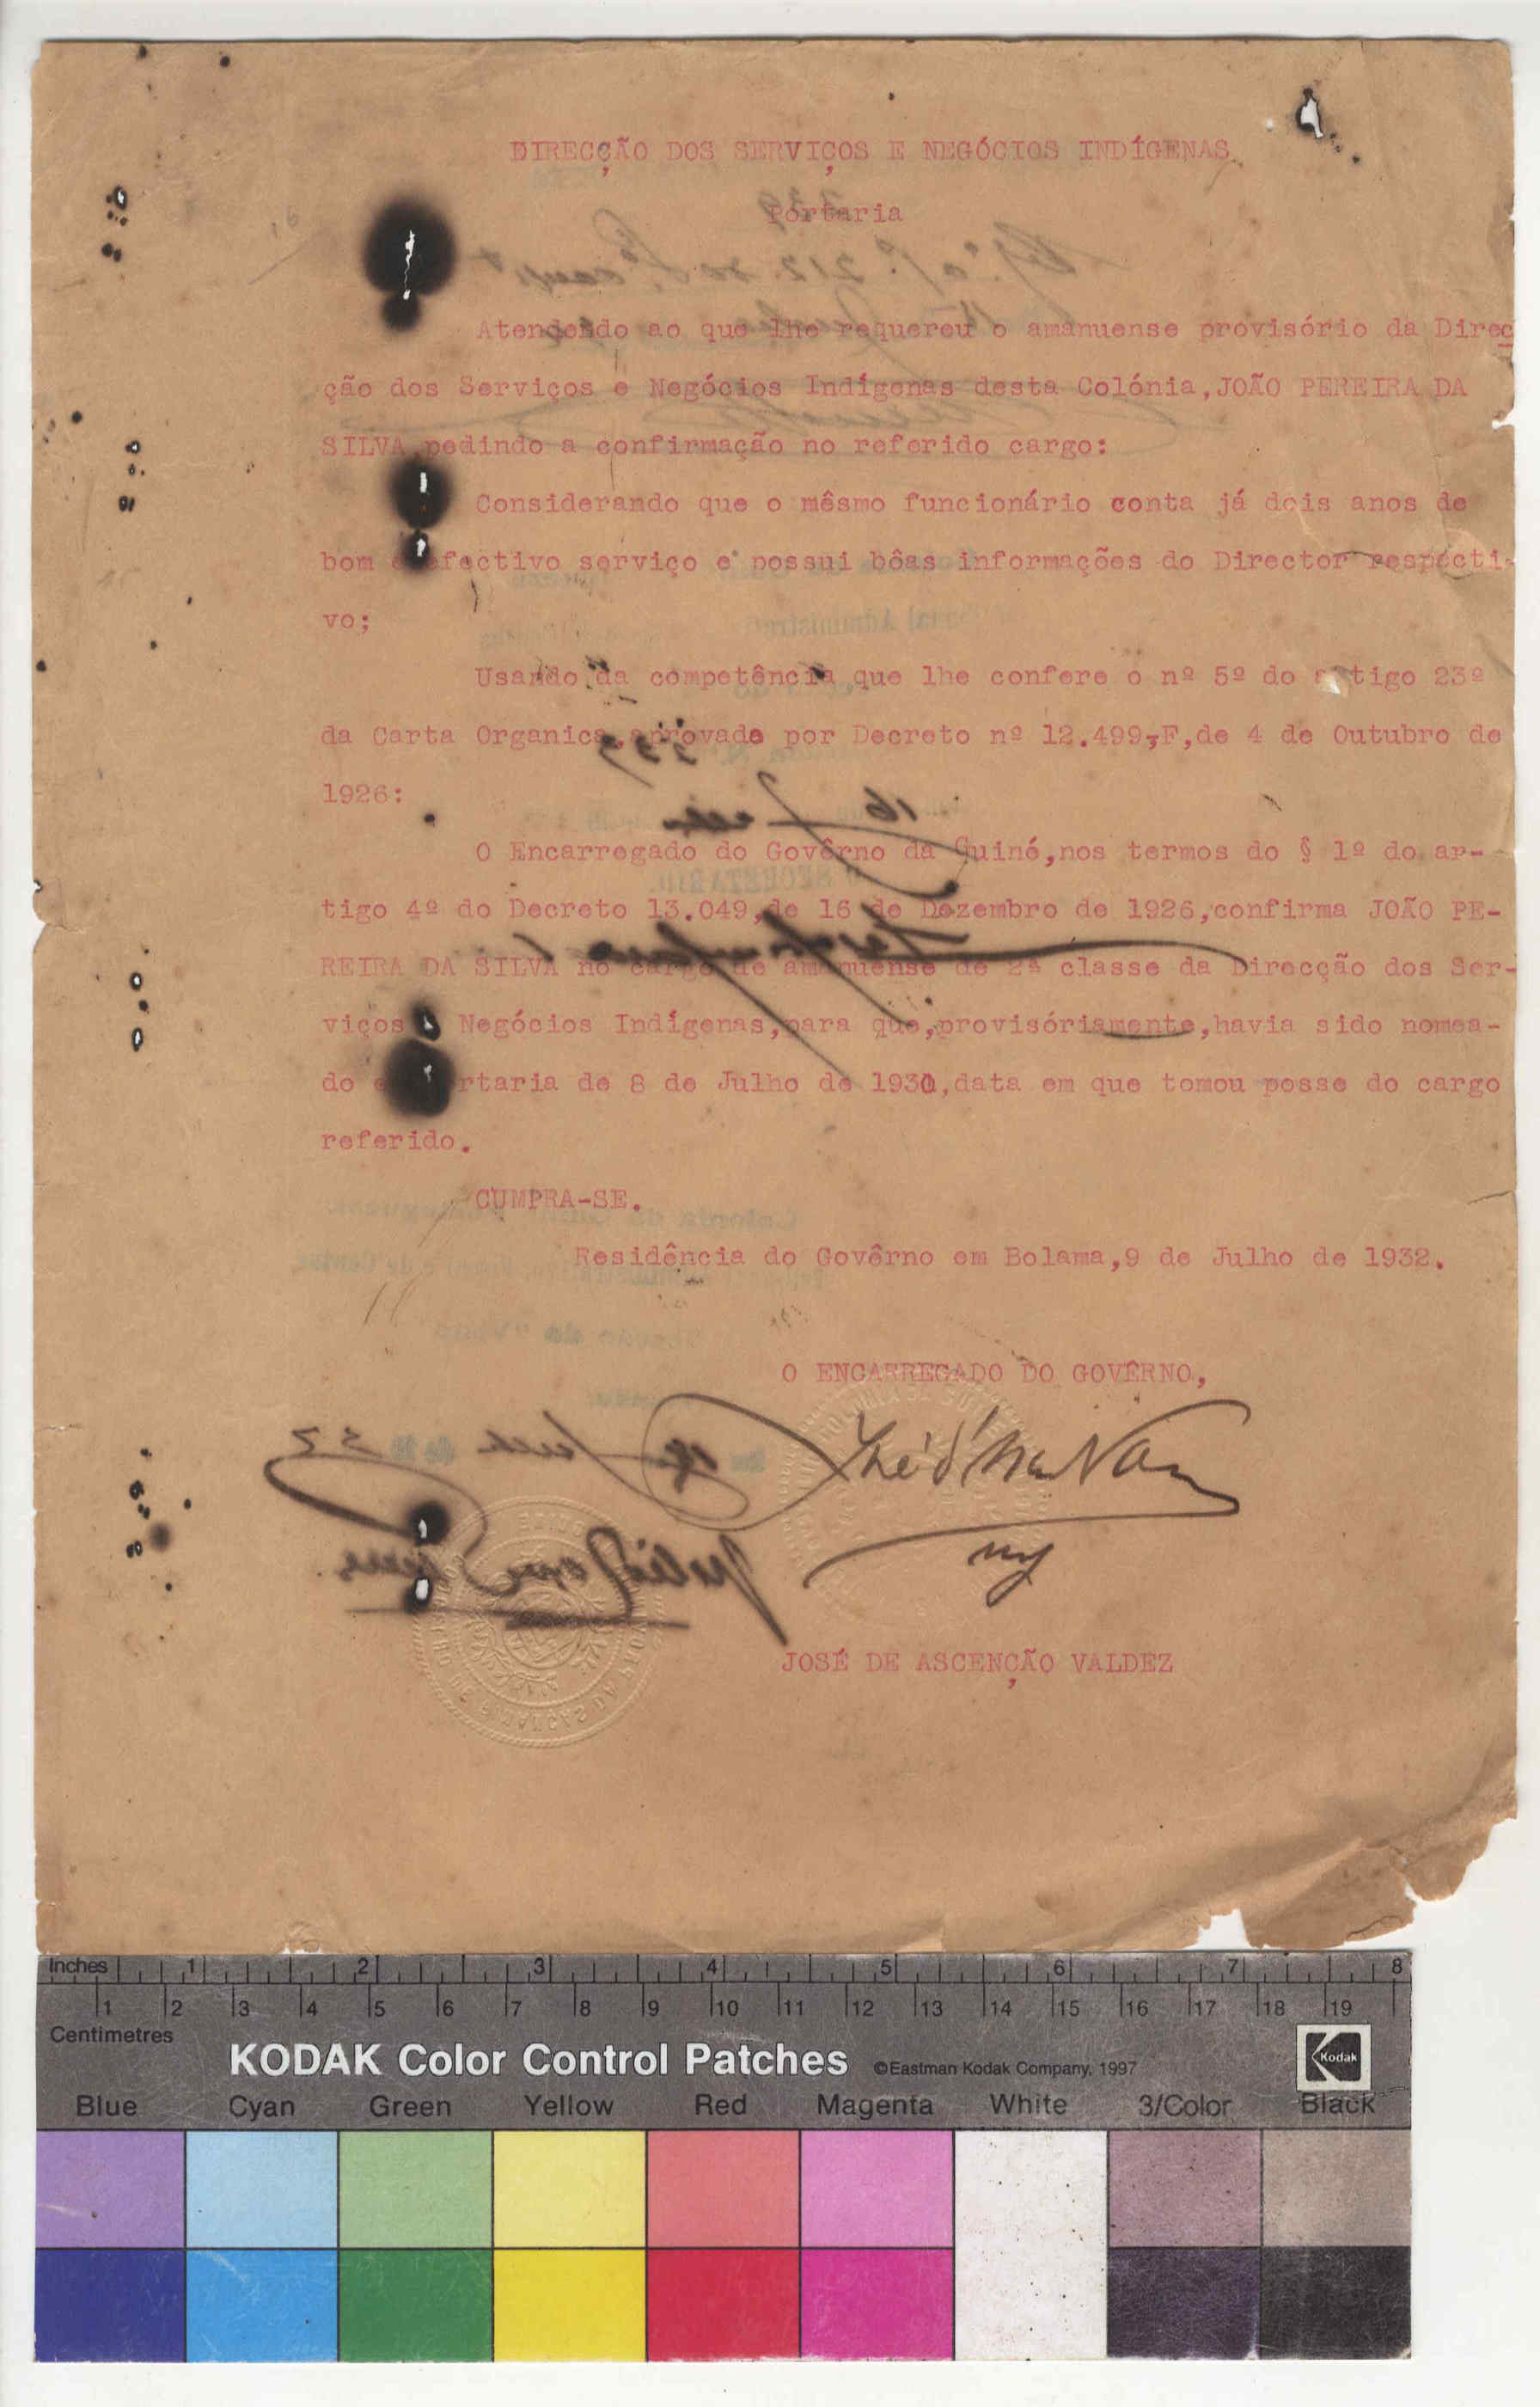 DIRECÇÃO DOS SERVIÇOS E NEGÓCIOS INDÍGENAS
Portaria
Atendendo ao que lhe requereu o amanuense provisório da Direc
ção dos Serviços e Negócios Indígenas desta Colónia,JOÃO PEREIRA DA
SILVA,pedindo a confirmação no referido cargo:
Considerando que o mêsmo funcionário conta já dois anos de
bom e efectivo serviço e possui bôas informações do Director respécti-
vo;
Usando da competência que lhe confere o nº 5º do artigo 23º
da Carta Organica,aprovada por Decreto nº 12.499-F,de 4 de Outubro de
1926:
O Encarregado do Govêrno da Guiné,nos termos do § 1º do ar-
tigo 4º do Decreto 13.049,de 16 de Dezembro de 1926,confirma JOÃO PE-
REIRA DA SILVA no cargo de amanuense de 2ª classe da Direcção dos Ser-
viços Negócios Indígenas,para que,provisóriamente,havia sido nomea-
do rtaria de 8 de Julho de 1930,data em que tomou posse do cargo
referido.
CUMPRA-SE.
Residência do Govêrno em Bolama,9 de Julho de 1932.
O ENCARREGADO DO GOVÊRNO,
JOSÉ DE ASCENÇÃO VALDEZ
Inches 1 2 3 4 5 6 7 8
1 2 3 4 5 6 7 8 9 10 11 12 13 14 15 16 17 18 19
Centimetres
KODAK Color Control Patches ©Eastman Kodak Company, 1997 Kodak
Blue Cyan Green Yellow Red Magenta White 3/Color Black